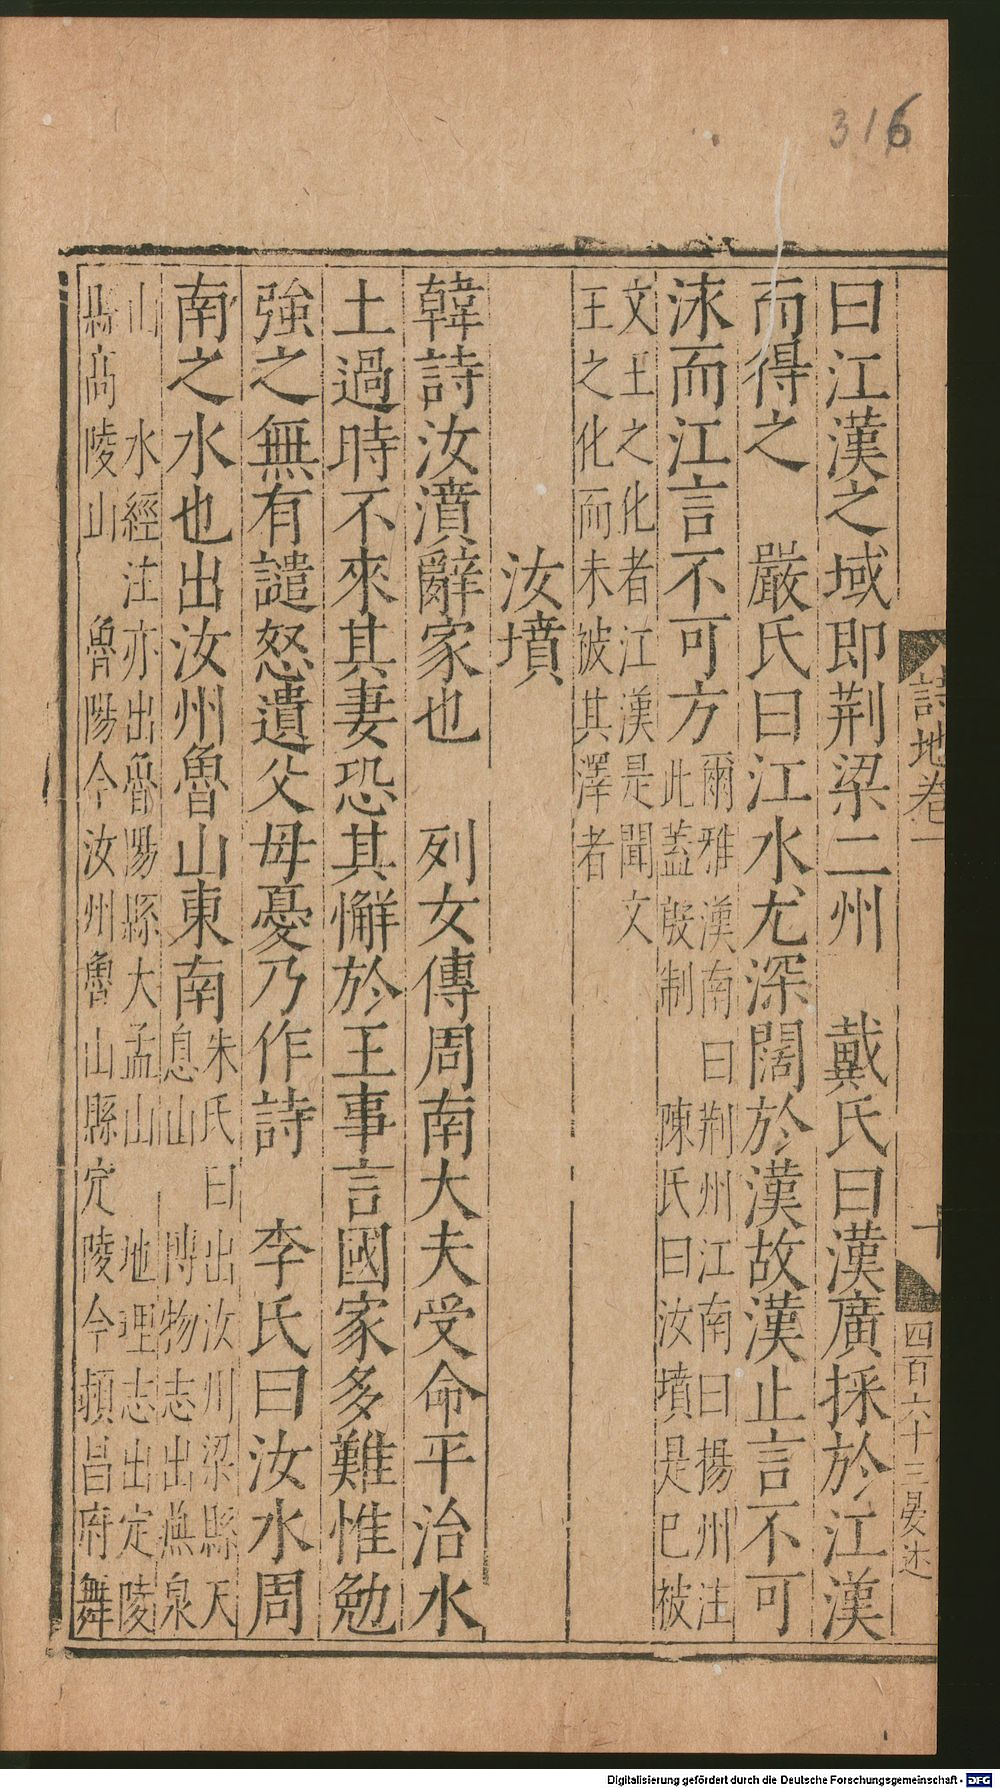 316
詩地卷一
十
四百六十三晏述
曰江漢之域即荆梁二州　戴氏曰漢廣採於江漢
而得之　嚴氏曰江水尤深闊於漢故漢止言不可
泳而江言不可方爾雅漢南曰荆州江南曰揚州注
此蓋殷制　陳氏曰汝墳是已被
文王之化者江漢是聞文
王之化而未被其澤者
汝墳
韓詩汝濆辭家也　列女傳周南大夫受命平治水
土過時不來其妻恐其懈於王事言國家多難惟勉
強之無有譴怒遺父母憂乃作詩　李氏曰汝水周
南之水也出汝州魯山東南朱氏曰出汝州梁縣天
息山　博物志出燕泉
山　水經注亦出魯陽縣大盂山　地理志出定陵
縣高陵山　魯陽今汝州魯山縣定陵今頓昌府舞
Digitalisierung gefördert durch die Deutsche Forschungsgemeinschaft - DFG